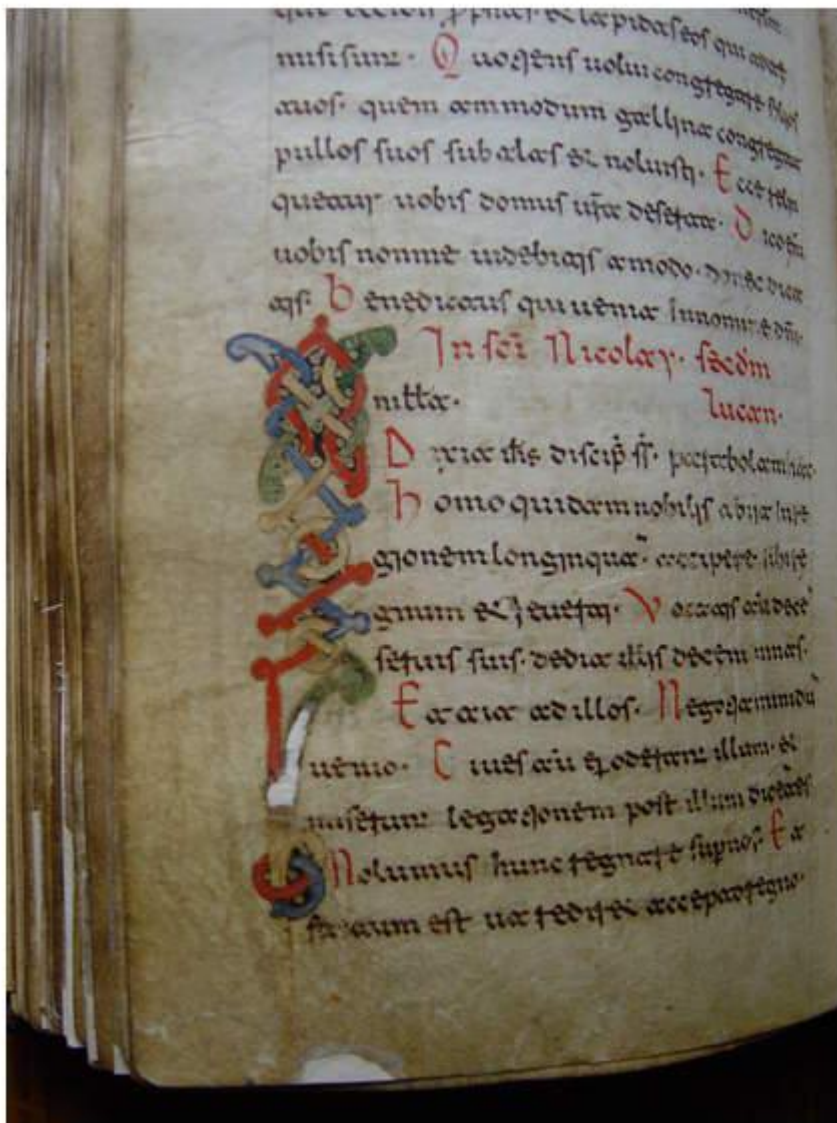 qui occidis p̄phetas· & lapidas eos qui adte
missi sunt· Quotiens uolui congregare filios
tuos· quem ammodum gallina congregat
pullos suos sub alas & noluisti· Ecce relin
quetur uobis domus ur̄a deserta· Dico enī
uobis non me uidebitis amodo· donec dica
tis· Benedictus qui uenit In nomine dn̄i·
In sc̄i Nicolay· scđm
Lucan·
Dixit ih̄s discip̄ s̄s· parabolam hanc·
Homo quidam nobilis abiit In re
gionem longinquā· accipere sibi re
gnum & reuerti· Vocatis aū decē
seruis suis· dedit illis decem mnas·
Et ait ad illos· Negotiamini dū
uenio· Ciues aū oderant illum· &
miserunt legationem post illum dicētes
Nolumus hunc regnare sup nos· Et
factum est ut redir& accepto regno·